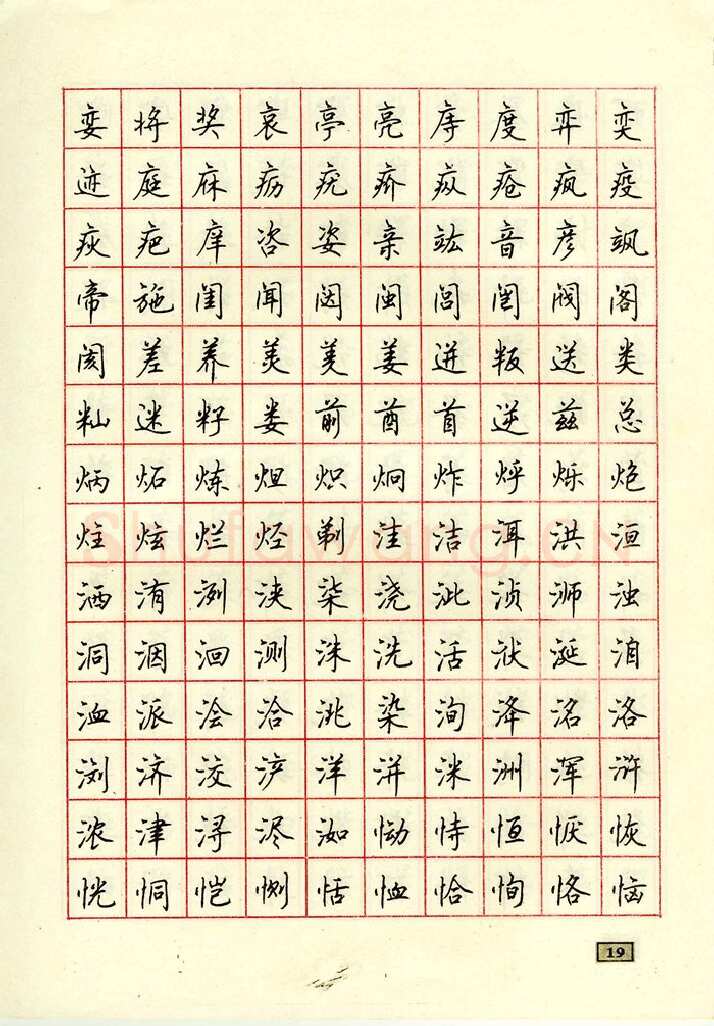 娈将奖哀亭亮庤度弈奕
迹庭庥疬疣疥疭疮疯疫
疢疤庠咨姿亲竑音彦飒
帝施闺闻闼闽闾闿阀阁
阂差养美羑姜迸叛送类
籼迷籽娄前酋首逆兹总
炳炻炼炟炽炯炸烀烁炮
炷炫烂烃剃洼洁洱洪洹
洒洧洌浃柒浇泚浈浉浊
洞洇洄测洙洗活洑涎洎
洫派浍洽洮染洵洚洺洛
浏济洨浐洋洴洣洲浑浒
浓津浔浕洳恸恃恒恹恢
恍恫恺恻恬恤恰恂恪恼
19